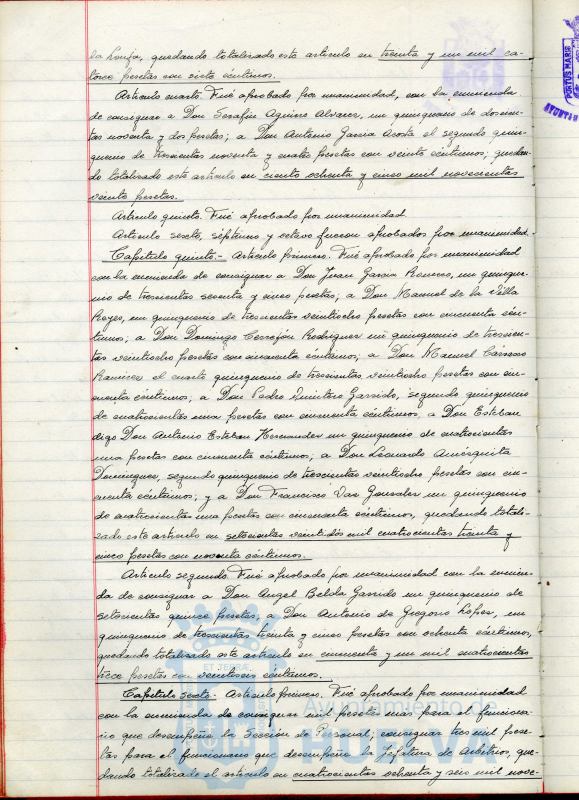 la Lonja, quedando totalizado este articulo en treinta y un mil ca-
torce pesetas con siete céntimos.
Articulo cuarto. Fué aprobado por unanimidad, con la enmienda
de consignar a Don Serafin Aguirre Alvarez, un quinquenio de doscien-
tas noventa y dos pesetas; a Don Antonio Garcia Acosta el segundo quin-
quenio de trescientas noventa y cuatro pesetas con veinte céntimos; quedan-
do totalizado este articulo en ciento ochenta y cinco mil novecientas
veinte pesetas.
Articulo quinto. Fué aprobado por unanimidad
Articulo sexto, séptimo y octavo fueron aprobados por unanimidad.
Capitulo quinto.- Articulo primero. Fué aprobado por unanimidad
con la enmienda de consignar a Don Juan Garcia Romero, un quinque-
nio de trescientas sesenta y cinco pesetas; a Don Manuel de la Villa
Reyes, un quinquenio de trescientas veintiocho pesetas con cincuenta cén-
timos; a Don Domingo Correjón Rodriguez un quinquenio de trescien-
tas veintiocho pesetas con cincuenta céntimos; a Don Manuel
Ramirez el cuarto quinquenio de trescientas veintiocho pesetas con cin-
cuenta céntimos; a Don Pedro Quintero Garrido, segundo quinquenio
de cuatrocientas una pesetas con cincuenta céntimos, a Don Esteban
digo Don Antonio Esteban Hernandez un quinquenio de cuatrocientas
una pesetas con cincuenta céntimos; a Don Leonardo Amézquita
Dominguez, segundo quinquenio de trescientas veintiocho pesetas con cin-
cuenta céntimos; y a Don Francisco Vaz Gonzalez un quinquenio
de cuatrocientas una pesetas con cincuenta céntimos, quedando totali-
zado este articulo en setecientas veintidós mil cuatrocientas treinta y
cinco pesetas con noventa céntimos.
Articulo segundo. Fué aprobado por unanimidad con la enmien-
da de consignar a Don Angel Belda Garrido un quinquenio de
setecientas quince pesetas, a Don Antonio de Gregorio Lopez, un
quinquenio de trescientas treinta y cinco pesetas con ochenta céntimos,
quedando totalizado este articulo en cincuenta y un mil cuatrocientas
trece pesetas con veintiseis céntimos.
Capitulo sexto.- Articulo primero. Fué aprobado por unanimidad
con la enmienda de consignar mil pesetas mas para el funciona-
rio que desempeña la Sección de Personal; consignar tres mil pese-
tas para el funcionario que desempeña la Jefatura de Arbitrios, que-
dando totalizado el articulo en cuatrocientas ochenta y seis mil nove-
PORTUS MARIS
AYUNTAM
ET TERRAE
Ayuntamiento de
HUELVA